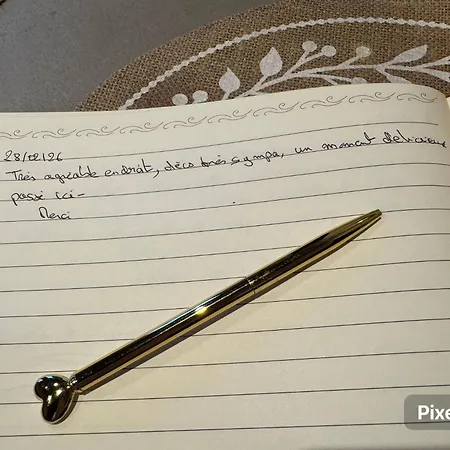 28/02/26
Très agréable endroit, déco très sympa, un moment délicieux
passé ici-
Merci
Pixe